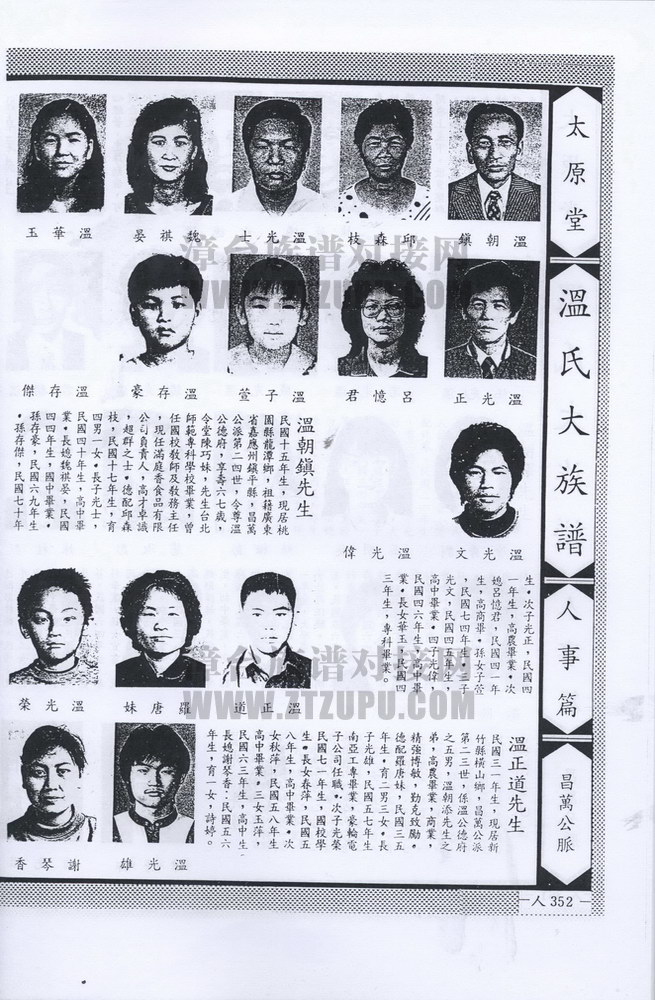 太原堂
溫氏大族譜
人事篇
昌萬公脈
鎮朝溫
枝森邱
士光溫
晏祺魏
玉華溫
正光溫
君憶呂
萱子溫
豪存溫
傑存溫
文光溫
偉光溫
溫朝鎮先生
民國十五年生，現居桃
園縣龍潭鄉，祖籍廣東
省嘉應州鎮平縣，昌萬
公派第二四世，令尊溫
公德府，享壽六七歲，
令堂陳巧妹，先生台北
師範專科學校畢業，曾
任國校敎師及敎務主任
，現任滿庭香食品有限
公司負責人，高才卓識
，超群之士。德配邱森
枝，民國十七年生，育
四男一女。長子光士，
民國四十年生，高中畢
業。長媳魏祺晏，民國
四四年生，國中畢業。
孫存豪，民國六九年生
。孫存傑，民國七十年
生。次子光正，民國四
一年生，高農畢業。次
媳呂憶君，民國四一年
生，高商畢。孫女子萱
，民國七四年生。三子
光文，民國四五年生，
高中畢業。四子光偉，
民國四六年生，高中畢
業。長女華玉，民國四
三年生，專科畢業。
道正溫
妹唐羅
榮光溫
雄光溫
香琴謝
溫正道先生
民國三一年生，現居新
竹縣橫山鄉，昌萬公派
第二三世，係溫公德府
之五男，溫朝添先生之
弟，高農畢業，商業，
精強博敏，勤克致勵。
德配羅唐妹，民國三五
年生。育二男三女。長
子光雄，民國五七年生
，南亞工專畢業，豪輪電
子公司任職。次子光榮
民國七一年生，國校學
生。長女春萍，民國五
八年生，高中畢業。次
女秋萍，民國五八年生
高中畢業。三女玉萍，
民國六三年生，高中生
長媳謝琴香：民國五六
年生，育一女，詩婷。
人 352
漳台族谱对接网
WWW.ZTZUPU.COM
漳台族谱对接网
WWW.ZTZUPU.COM